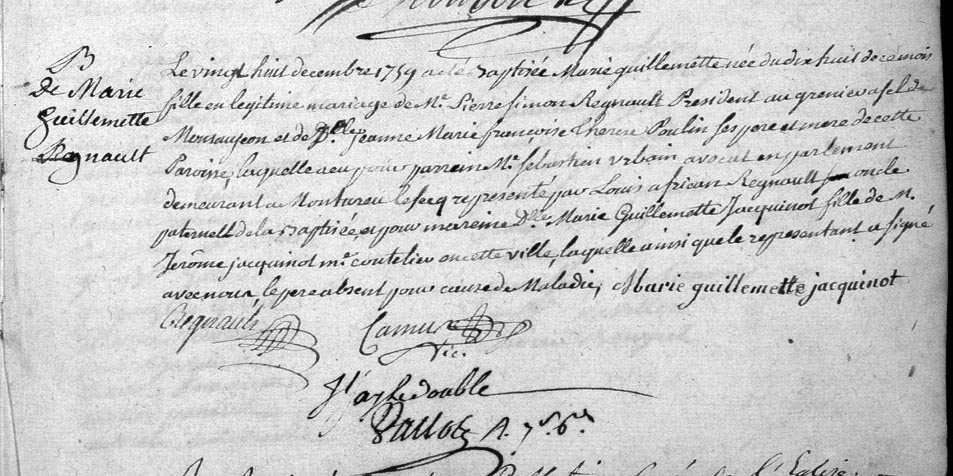 B
De Marie
Guillemette
Regnault
Le vingt huit decembre 1759 a eté Baptisée Marie guillemette née du dix huit de ce mois
fille en legitime mariage de Mr. Pierre Simon Regnault President au grenier a sel de
Monsaujeon et de Dlle Jeanne Marie françoise Therese Poulin ses pere et mere de cette
Paroise, laquelle a eu pour parrein Mr. Sebastien urbain avocat en parlement
demeurant a Montureu le secq representé par Louis african Regnault oncle
paternell de la Baptisée, et pour mareine Dlle Marie Guillemette Jacquinot fille de M.
Jerôme jacquinot me. coutelier en cette ville, laquelle ainsi que le representant a signé
avec nous, le pere absent pour cause de Maladie, Marie guillemette jacquinot
Regnault
Camus
vic.
J'ay le double